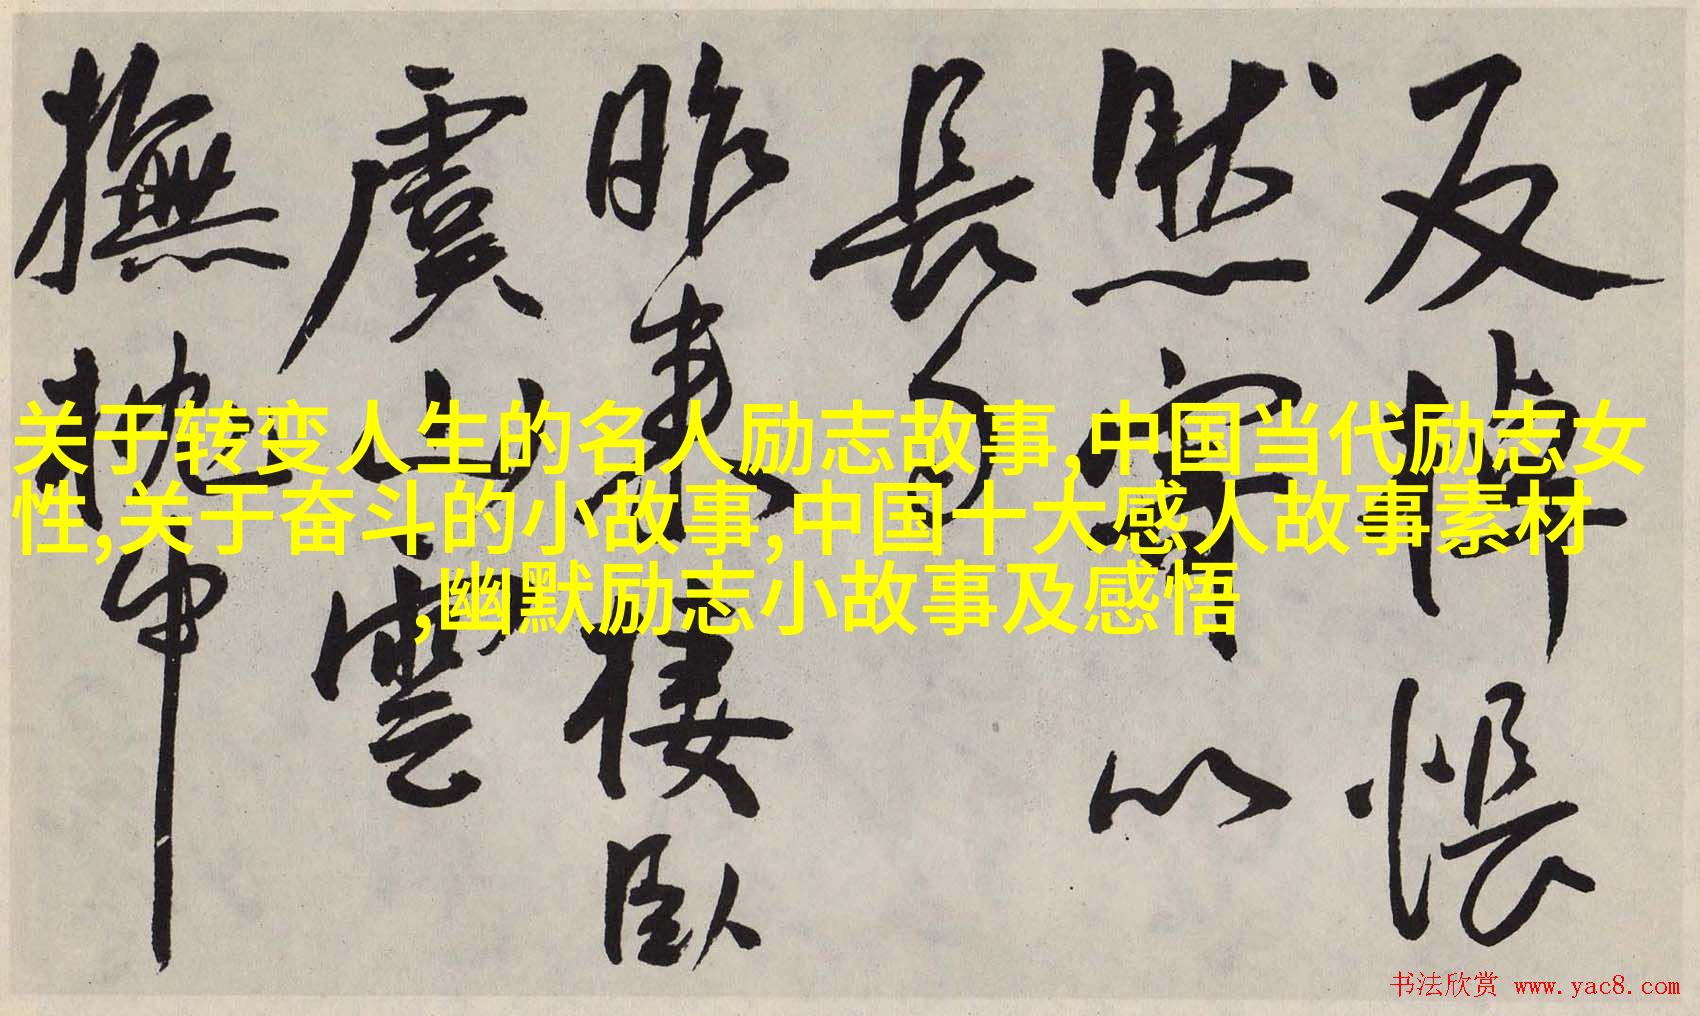 反棹悵
然寄以
長句
昨來棲臥
虞山雲
撫枕中
关于转变人生的名人励志故事,中国当代励志女
性,关于奋斗的小故事,中国十大感人故事素材
,幽默励志小故事及感悟
书法欣赏 www.yac8.com